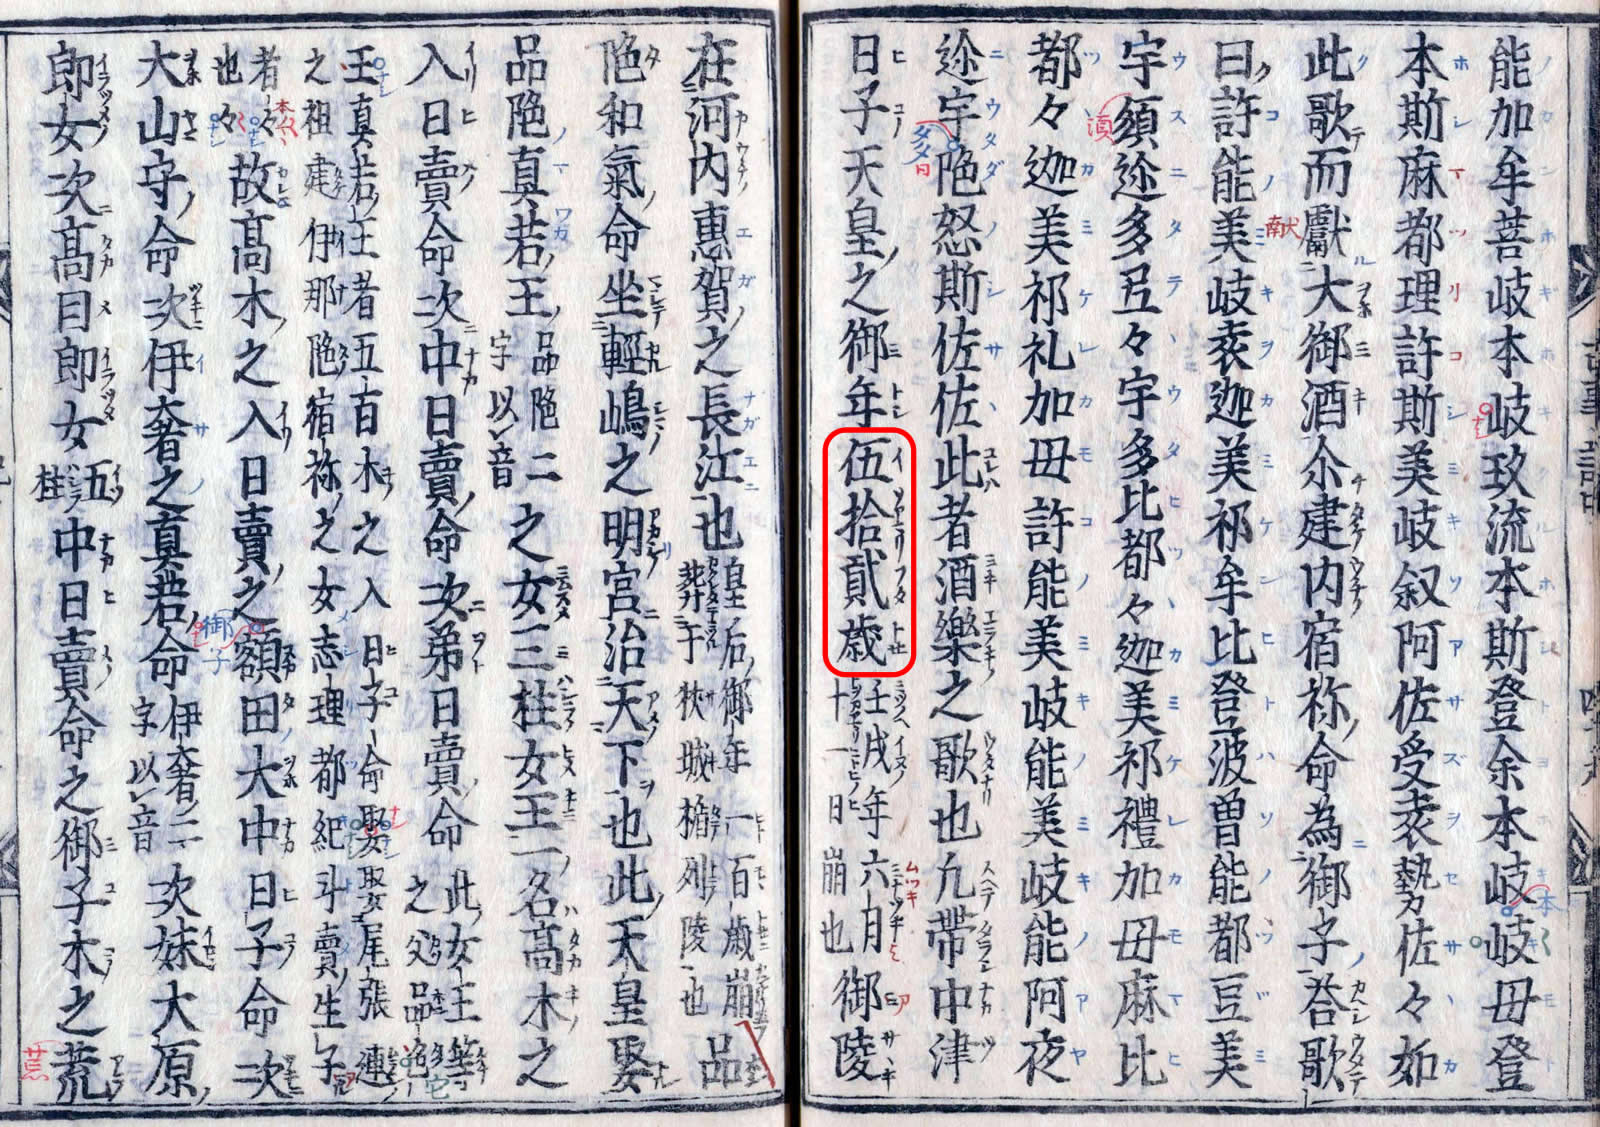 能加牟菩岐本岐玖流本斯登余本岐岐毋登
本斯麻都理許斯美岐叙阿佐受袁勢佐々如
此歌而獻大御酒尒建内宿祢命為御子荅歌
曰許能美岐袁迦美祁牟比登波曽能都豆美
宇須迩多弖々宇多比都々迦美祁禮加毋麻比
都々迦美祁礼加毋許能美岐能美岐能阿夜
迩宇陁怒斯佐佐此者酒樂之歌也凢帶中津
日子天皇之御年伍拾貳歳
壬戌年六月
十一日崩也
御陵
在河内惠賀之長江也
皇后御年一百歳崩
葬于狹城楯列陵也
品
陁和氣命坐輕嶋之明宮治天下也此天皇娶
品陁真若王
品陁二
字以音
之女三柱女王一名髙木之
入日賣命次中日賣命次弟日賣命
此女王等
之父品陁
王真若王者五百木之入日子命娶尾張連
之祖建伊那陁宿祢之女志理都紀斗賣生子
者
也
故髙木之入日賣之
額田大中日子命次
大山守命次伊奢之真若命
伊奢二
字以音
次妹大原
郎女次髙目郎女
五
柱
中日賣命之御子木之荒